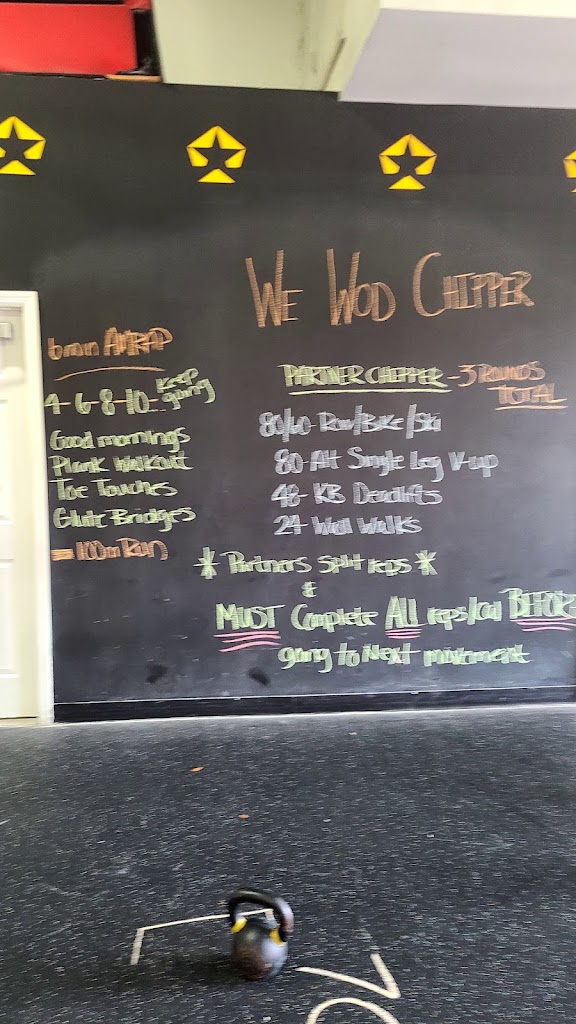 WE WOD CHIPPER
6 min AMRAP
4-6-8-10... Keep going
Good mornings
Plank Walkout
Toe Touches
Glute Bridges
100m Run
PARTNER CHIPPER - 3 ROUNDS TOTAL
80/60 Row/Bike/Ski
80- Alt Single Leg V-up
48- KB Deadlifts
24 Wall Walks
* Partners Split reps *
&
MUST Complete ALL reps/cal BEFORE
going to Next movement